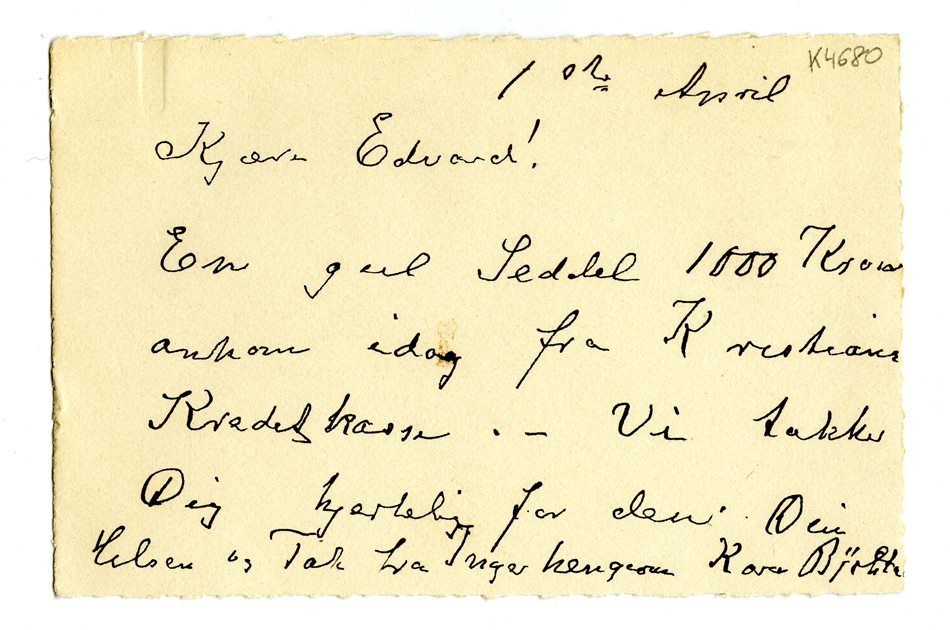 K4680
1ste April
Kjære Edvard!
En gul Seddel 1000 Kron
ankom idag fra Kristiania
Kreditkasse. – Vi takke
Dig hjertelig for den. Din
Hilsen og Tak fra Inger